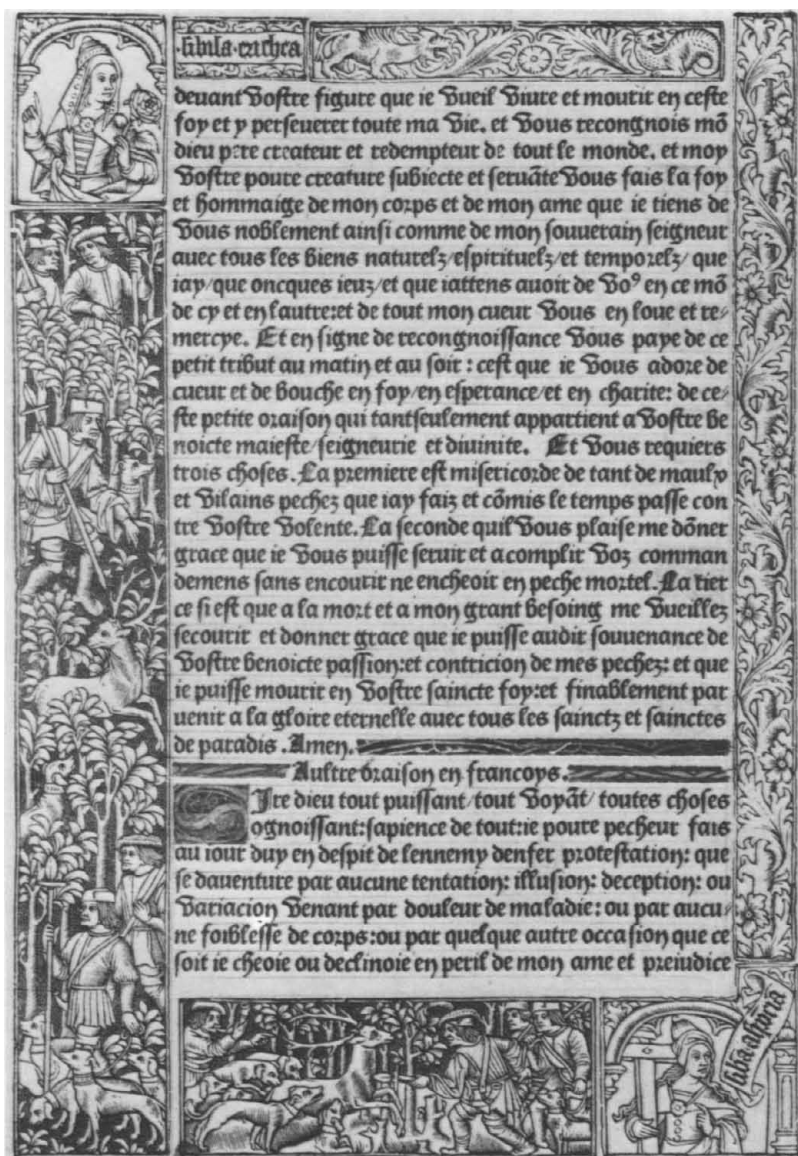 ·sibila·erichea
deuant vostre figure que ie vueil viure et mourir en ceste
foy et y perseuerer toute ma vie. et vous recongnois mō
dieu pere createur et redempteur de tout le monde. et moy
vostre poure creature subiecte et seruāte vous fais la foy
et hommaige de mon corps et de mon ame que ie tiens de
vous noblement ainsi comme de mon souuerain seigneur
auec tous les biens naturelz/espirituelz/et temporelz/ que
iay/que oncques ieuz/et que iattens auoir de voꝰ en ce mō
de cy et en lautre:et de tout mon cueur vous en loue et re/
mercye. Et en signe de recongnoissance vous paye de ce
petit tribut au matin et au soir : cest que ie vous adore de
cueur et de bouche en foy/en esperance/et en charite: de ce/
ste petite oraison qui tantseulement appartient a vostre be
noicte maieste/seigneurie et diuinite. Et vous requiers
trois choses. La premiere est misericorde de tant de maulx
et vilains pechez que iay faiz et cōmis le temps passe con
tre vostre volente. La seconde quil vous plaise me dōner
grace que ie vous puisse seruir et acomplir voz comman
demens sans encourir ne encheoir en peche mortel. La tier
ce si est que a la mort et a mon grant besoing me vueillez
secourir et donner grace que ie puisse audir souuenance de
vostre benoicte passion:et contricion de mes pechez: et que
ie puisse mourir en vostre saincte foy:et finablement par
uenir a la gloire eternelle auec tous les sainctz et sainctes
de paradis . Amen.
Aultre oraison en francoys.
SIre dieu tout puissant/tout voyāt/ toutes choses
ognoissant:sapience de tout:ie poure pecheur fais
au iour duy en despit de lennemy denfer protestation: que
se dauenture par aucune tentation: illusion: deception: ou
variacion venant par douleur de maladie: ou par aucu/
ne foiblesse de corps:ou par quelque autre occasion que ce
soit ie cheoie ou declinoie en peril de mon ame et preiudice